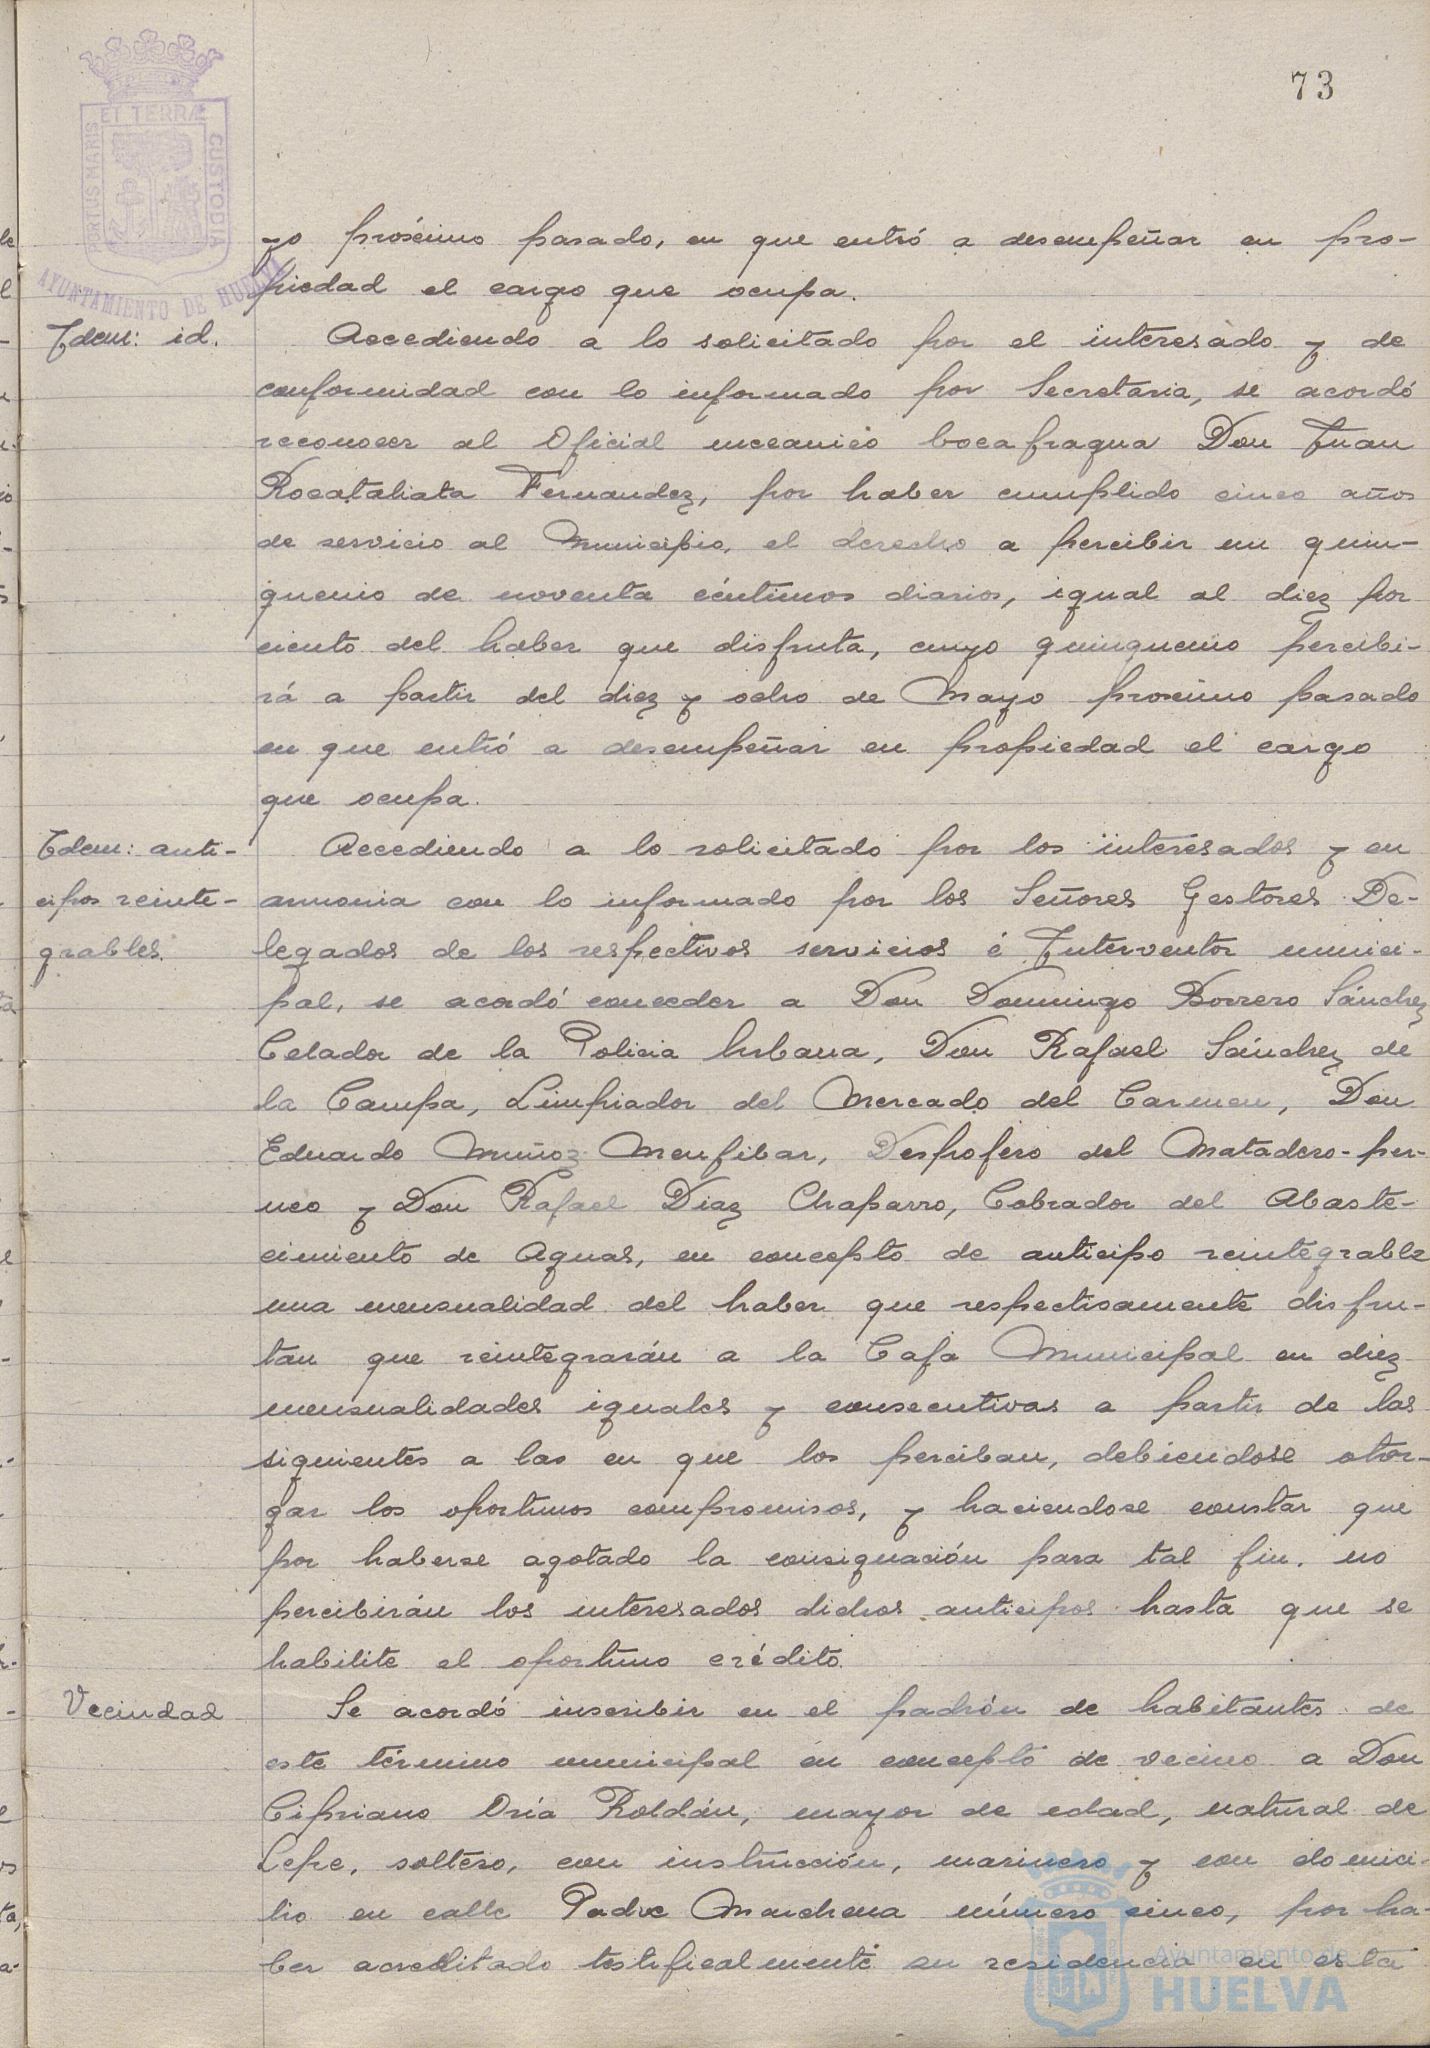 73
PORTUS MARIS ET TERRÆ CUSTODIA
AYUNTAMIENTO DE HUELVA
yo próximo pasado, en que entró a desempeñar en pro-
piedad el cargo que ocupa.
Idem: id.
Accediendo a lo solicitado por el interesado y de
conformidad con lo informado por Secretaria, se acordó
reconocer al Oficial mecanico bocafragua Don Juan
Rocataliata Fernandez, por haber cumplido cinco años
de servicio al Municipio, el derecho a percibir un quin-
quenio de noventa céntimos diarios, igual al diez por
ciento del haber que disfruta, cuyo quinquenio percibi-
rá a partir del diez y ocho de Mayo proximo pasado
en que entró a desempeñar en propiedad el cargo
que ocupa.
Idem: anti-
cipos reinte-
grables.
Accediendo a lo solicitado por los interesados y en
armonia con lo informado por los Señores Gestores De-
legados de los respectivos servicios é Interventor munici-
pal, se acordó conceder a Don Domingo Borrero Sánchez
Celador de la Policia Urbana, Don Rafael Sánchez de
la Campa, Limpiador del Mercado del Carmen, Don
Eduardo Muñoz Menfibar, Despofero del Matadero-per-
neo y Don Rafael Diaz Chaparro, Cobrador del Abaste-
cimiento de Aguas, en concepto de anticipo reintegrable
una mensualidad del haber que respectivamente disfru-
tan que reintegrarán a la Caja Municipal en diez
mensualidades iguales y consecutivas a partir de las
siguientes a las en que los perciban, debiendose otor-
gar los oportunos compromisos, y haciendose constar que
por haberse agotado la consignación para tal fin, no
percibirán los interesados dichos anticipos hasta que se
habilite el oportuno crédito.
Vecindad
Se acordó inscribir en el padrón de habitantes de
este término municipal en concepto de vecino a Don
Cipriano Oria Roldán, mayor de edad, natural de
Lepe, soltero, con instrucción, marinero y con domici-
lio en calle Padre Marchena número cinco, por ha-
ber acreditado testificalmente su residencia en esta
Ayuntamiento de
HUELVA